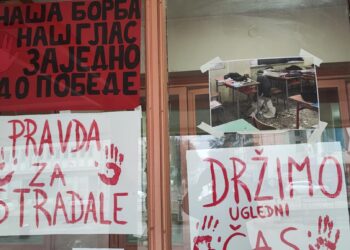 НАША БОРБА
НАШ ГЛАС
ЗАЈЕДНО
ДО ПОБЕДЕ
PRAVDA
ZA
STRADALE
DRŽIMO
UGLEDNI
ČAS